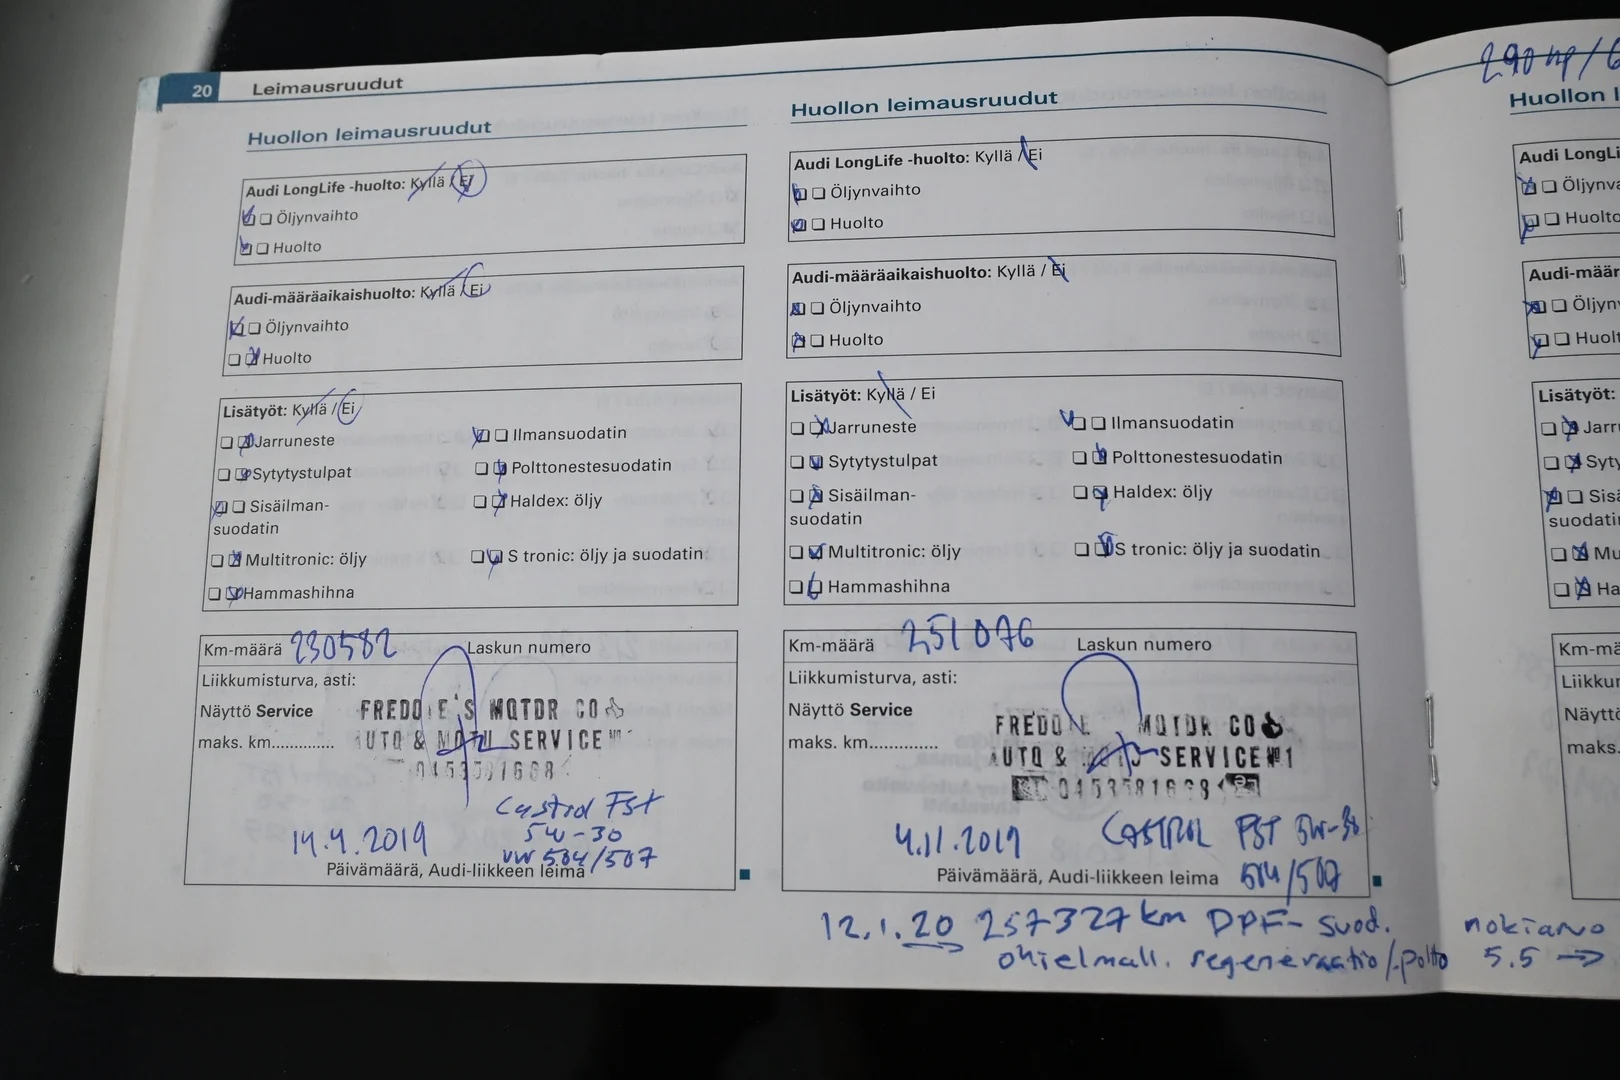 20 Leimausruudut
Huollon leimausruudut
Audi LongLife -huolto: Kyllä / Ei
Öljynvaihto
Huolto
Audi-määräaikaishuolto: Kyllä / Ei
Öljynvaihto
Huolto
Lisätyöt: Kyllä / Ei
Jarruneste
Ilmansuodatin
Sytytystulpat
Polttonestesuodatin
Sisäilman-
suodatin
Haldex: öljy
Multitronic: öljy
S tronic: öljy ja suodatin
Hammashihna
Km-määrä 230582 Laskun numero
Liikkumisturva, asti:
Näyttö Service
maks. km..............
FREDDIE'S MOTOR CO
AUTO & MOTO SERVICE №1
0453581668
Castrol FST
5W-30
14.4.2019
VW 504/507
Päivämäärä, Audi-liikkeen leima
Huollon leimausruudut
Audi LongLife -huolto: Kyllä / Ei
Öljynvaihto
Huolto
Audi-määräaikaishuolto: Kyllä / Ei
Öljynvaihto
Huolto
Lisätyöt: Kyllä / Ei
Jarruneste
Ilmansuodatin
Sytytystulpat
Polttonestesuodatin
Sisäilman-
suodatin
Haldex: öljy
Multitronic: öljy
S tronic: öljy ja suodatin
Hammashihna
Km-määrä 251076 Laskun numero
Liikkumisturva, asti:
Näyttö Service
maks. km..............
FREDDIE MOTOR CO
AUTO & MOTO SERVICE №1
0453581668
4.11.2019 CASTROL FST 5W-30
Päivämäärä, Audi-liikkeen leima 504/507
12.1.20 257327 km DPF-suod.
ohjelmall. regeneraatio/-poltto
290 hp/6
Huollon l
Audi LongLi
Öljynva
Huolto
Audi-määr
Öljyn
Huolt
Lisätyöt:
Jarr
Syty
Sisä
suodati
Mu
Ha
Km-mä
Liikkur
Näyttö
maks.
nokiarvo
5.5 →